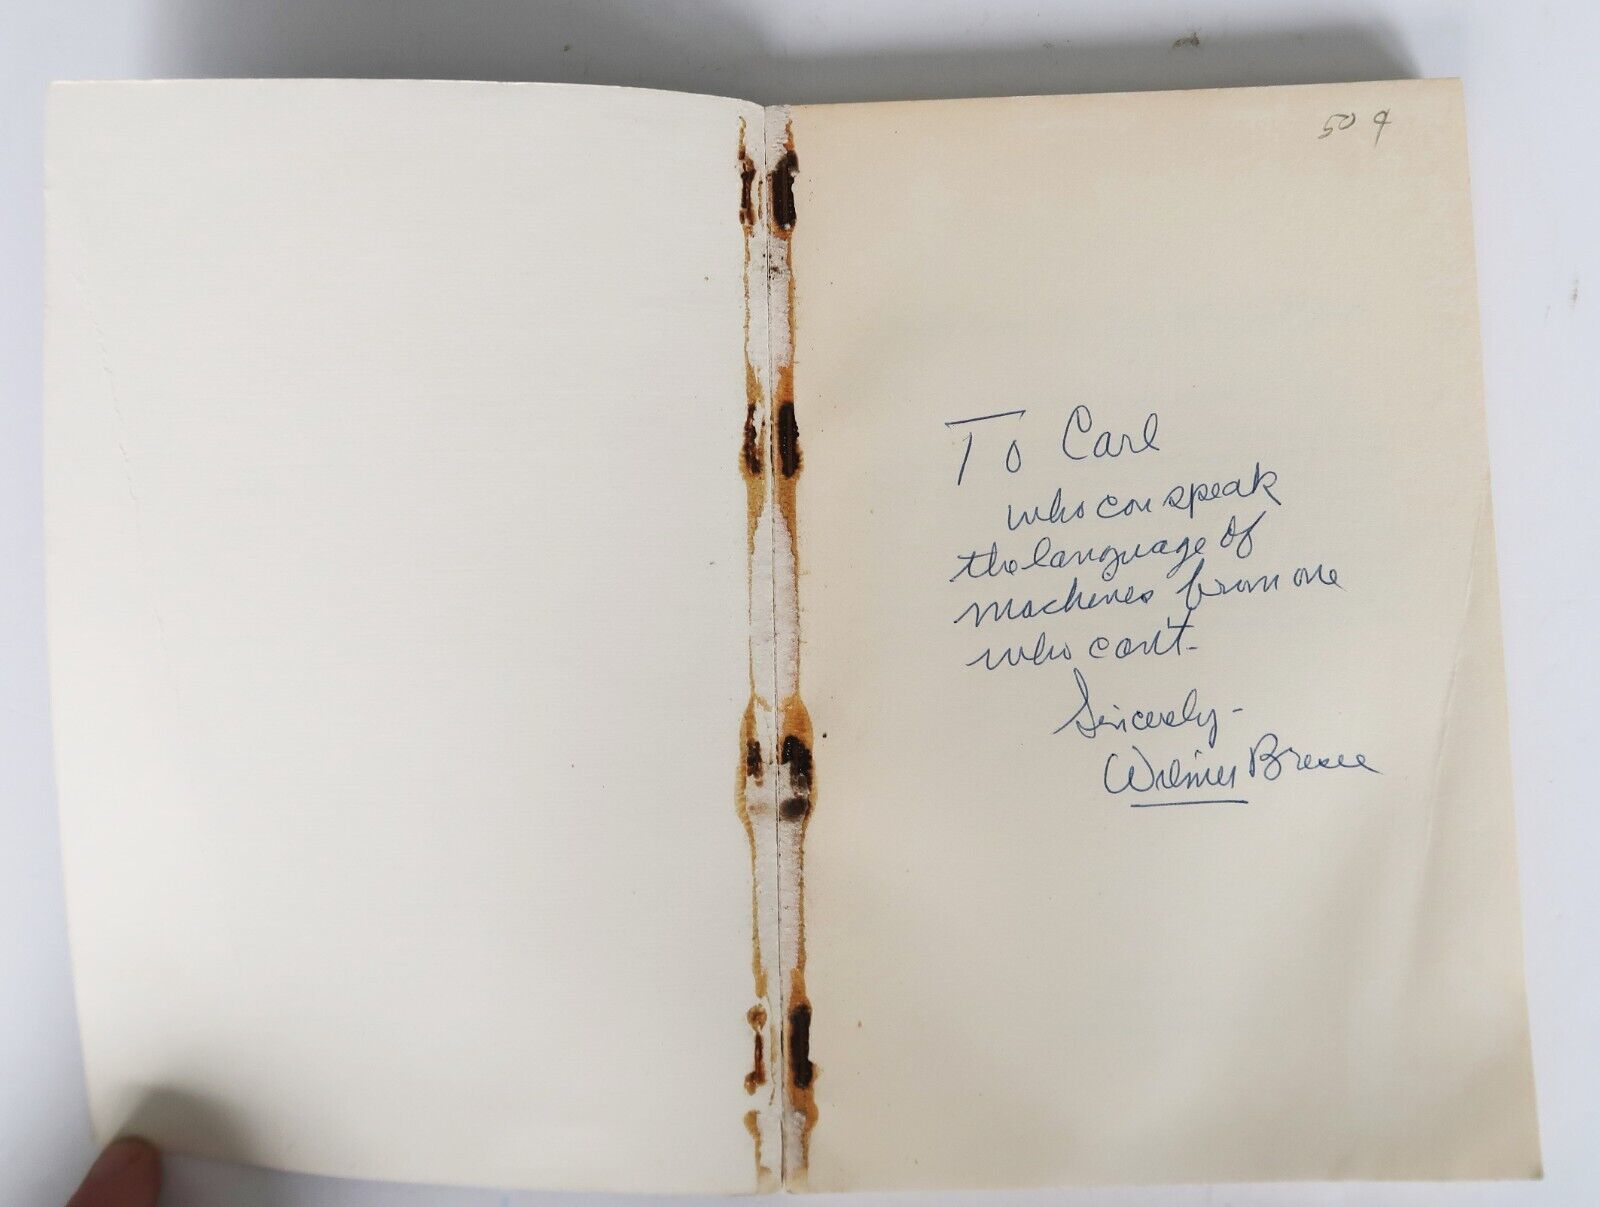 50 ¢
To Carl
who can speak
the language of
machines from one
who can't.
Sincerely -
Wilmer